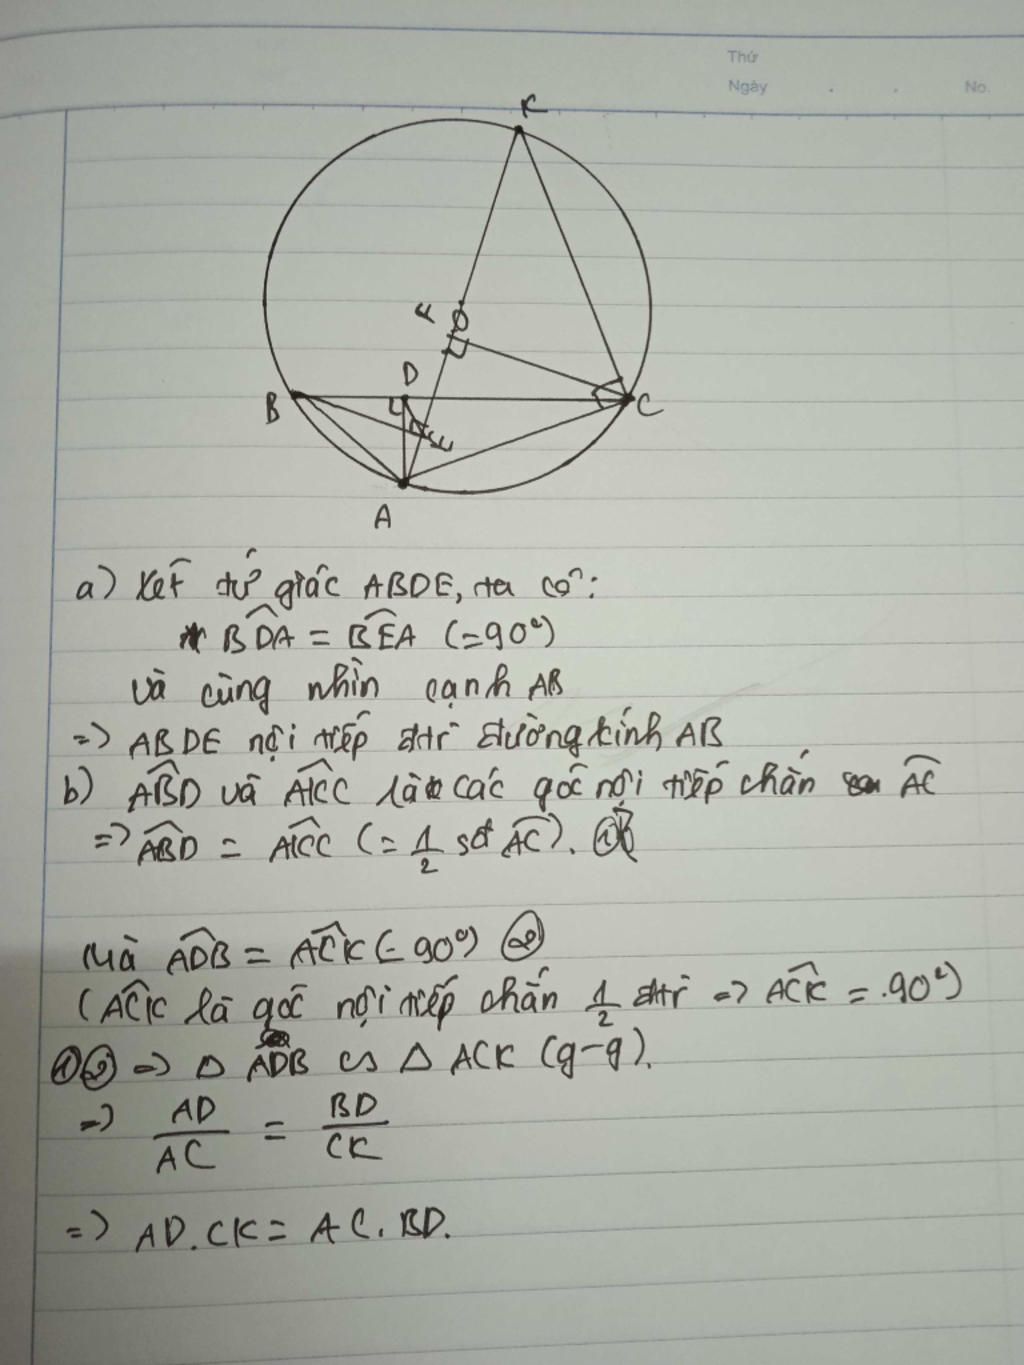 Thứ
Ngày
No.
K
F
O
D
B
C
E
A
a) Xét tứ giác ABDE, ta có:
BDA = BEA (=90°)
và cùng nhìn cạnh AB
=> ABDE nội tiếp đtr đường kính AB
b) ABD và AKC là các góc nội tiếp chắn AC
=> ABD = AKC (= 1/2 sđ AC). ①
Mà ADB = ACK (= 90°) ②
(ACK là góc nội tiếp chắn 1/2 đtr => ACK = 90°)
①② => Δ ADB ∽ Δ ACK (g-g).
=> AD/AC = BD/CK
=> AD.CK = AC.BD.